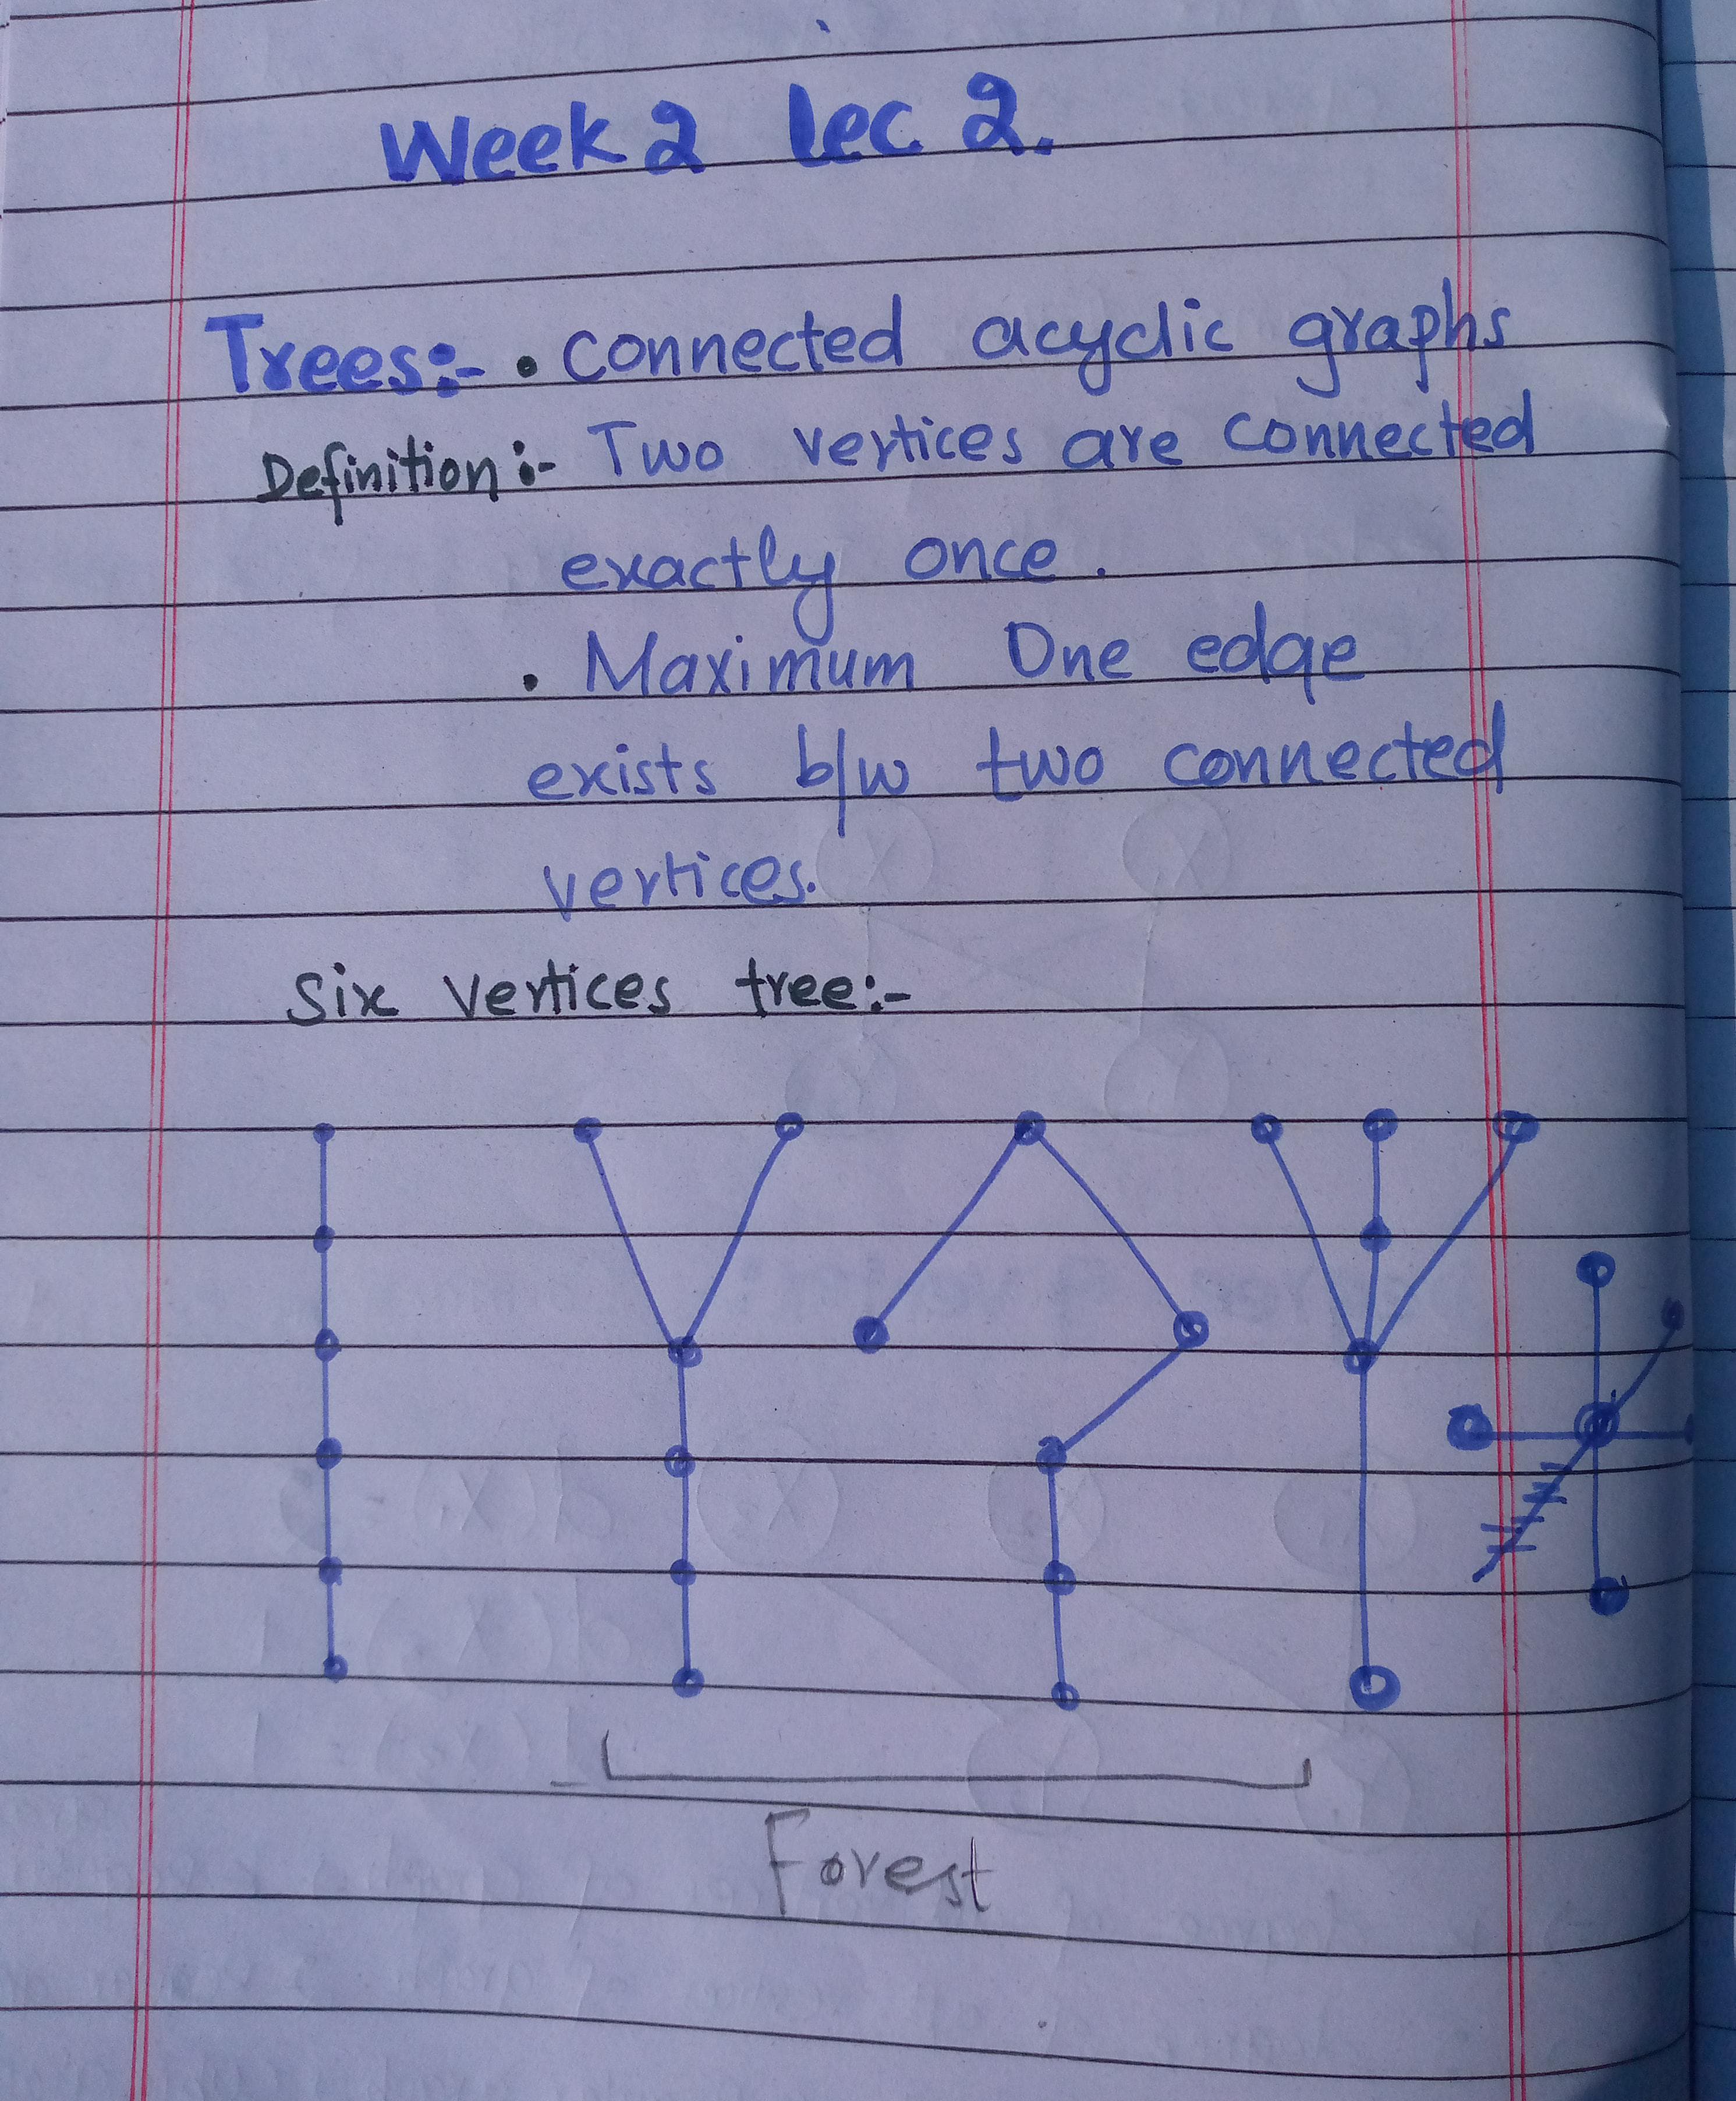 Week 2 lec 2.
Trees:- • connected acyclic graphs
Definition:- Two vertices are connected
exactly once.
• Maximum One edge
exists b/w two connected
vertices.
Six vertices tree:-
Forest